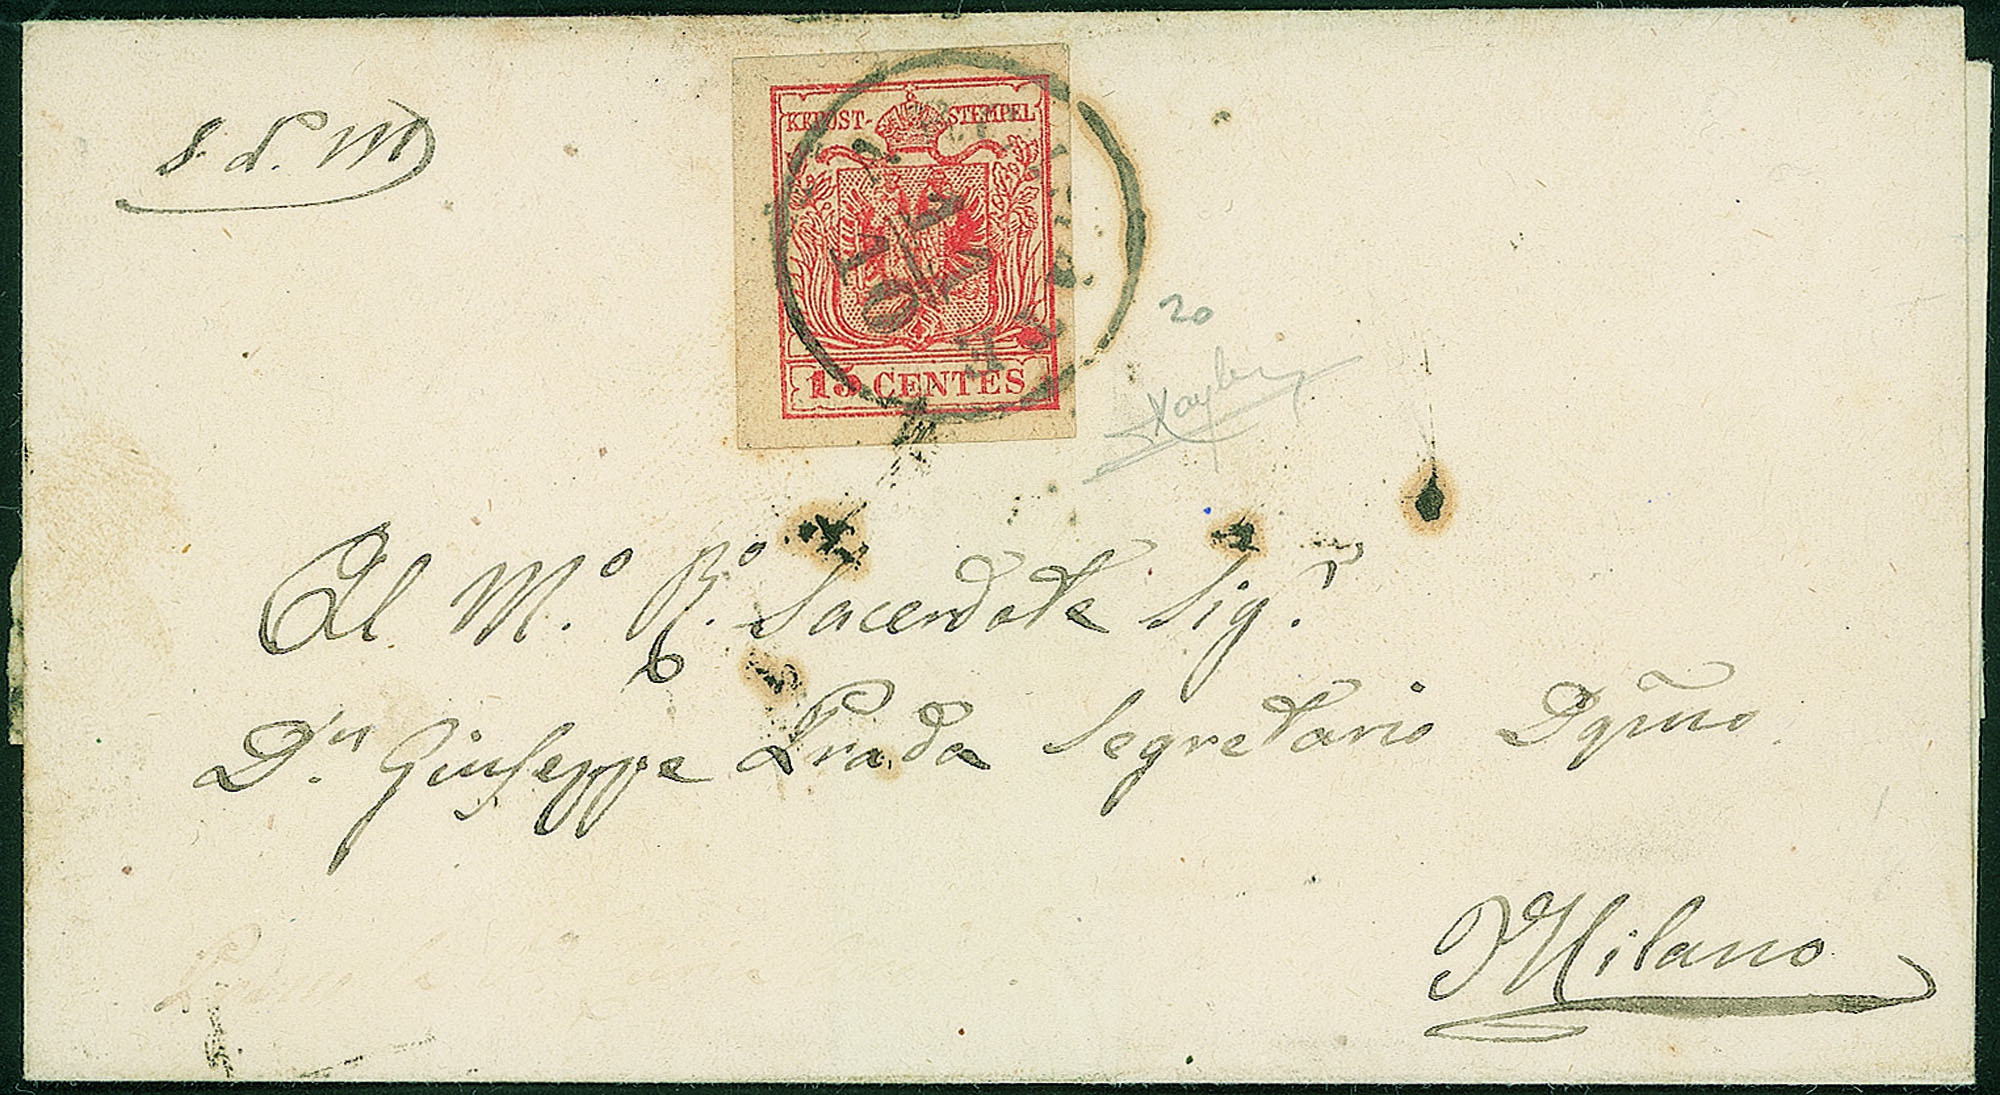 S. P. M
KKPOST-STEMPEL
15 CENTES
20
Al M.º R.º Sacerdote Sig.r
D.n Giuseppe Prada Segretario Dgmo
Milano